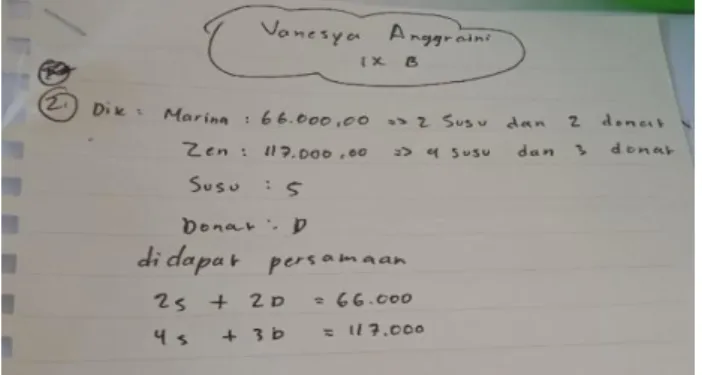 Vanesya Anggraini
IX B
2. Dik : Marina : 66.000,00 => 2 Susu dan 2 donat
Zen : 117.000,00 => 4 susu dan 3 donat
Susu : S
Donat : D
didapat persamaan
2s + 2D = 66.000
4s + 3D = 117.000